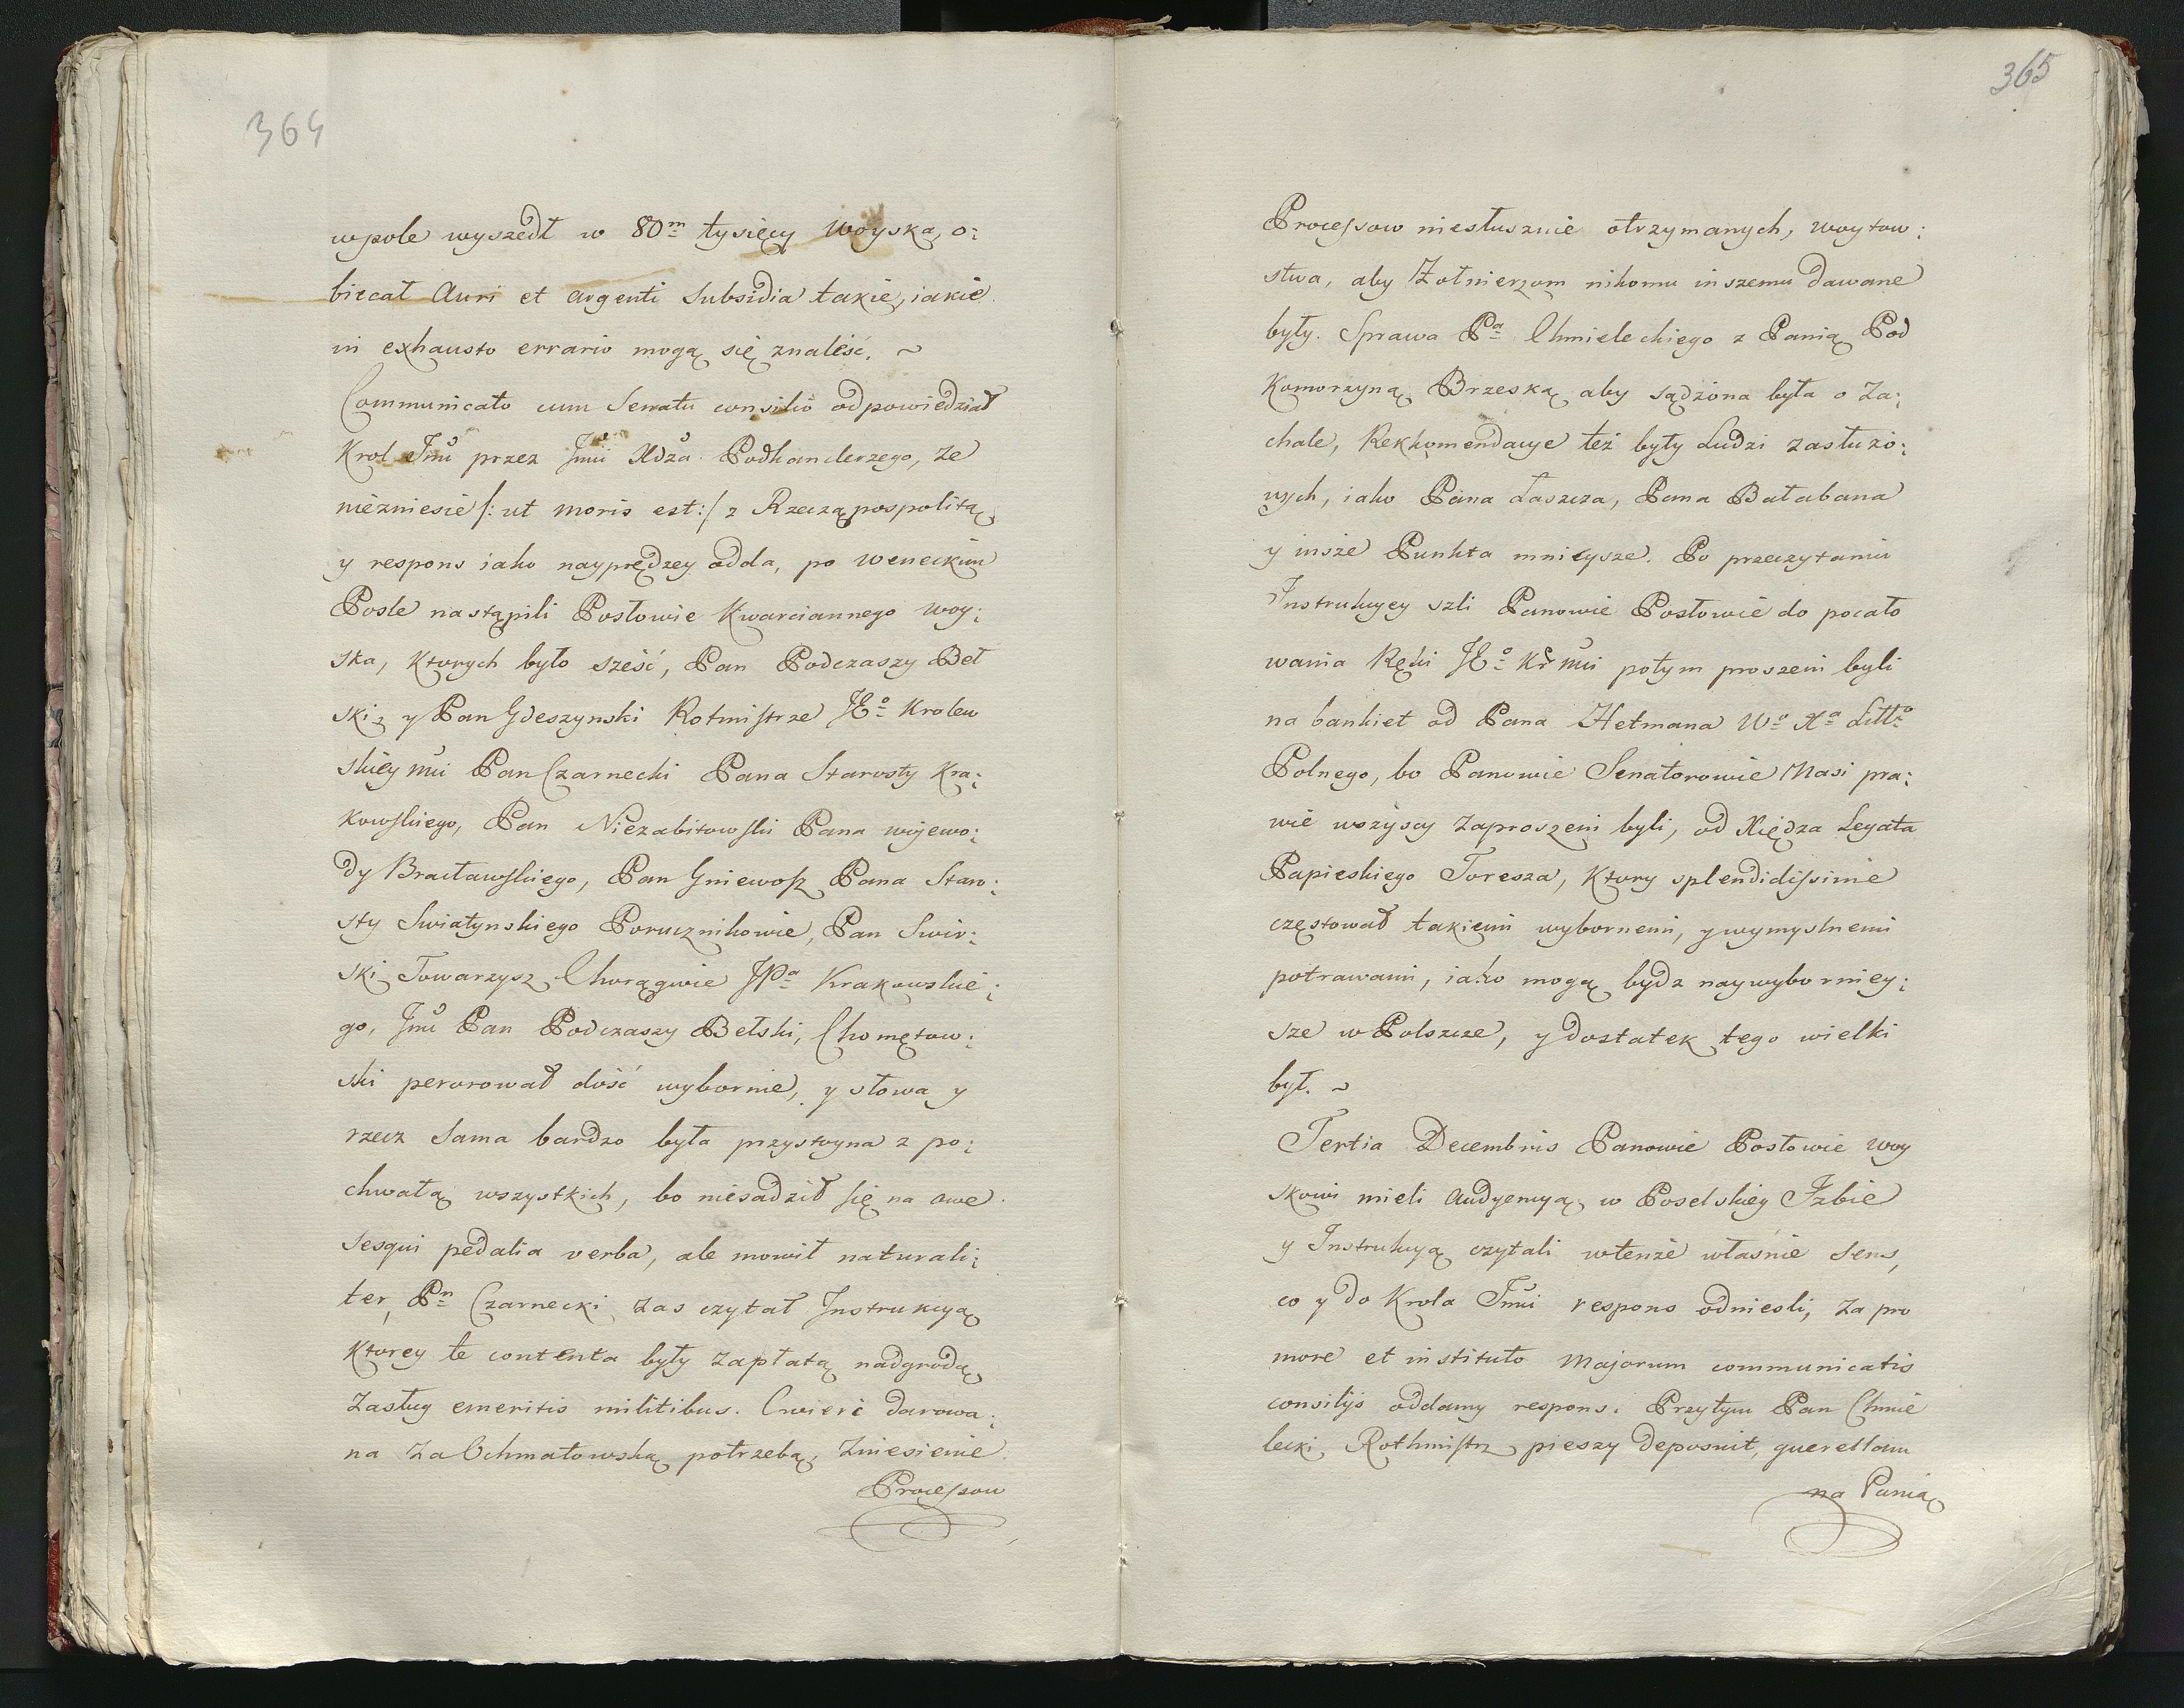 364
wpole wyszedł w 80m tysięcy Woyska, o:
biecał Auri et argenti Subsidia takie, iakie
in exhausto errario mogą się znaleść. ~
Communicato cum Senatu consilio odpowiedział
Krol Jmć przez Jmći Xdza Podkanclerzego, że
niezniesie /: ut moris est :/ z Rzecząpospolitą,
y respons iako nayprędzey odda, po weneckim
Posle nastąpili Posłowie Kwarciannego woy:
ska, Ktorych było sześć, Pan Podczaszy Beł
ski, y Pan Gdeszynski Rotmistrze JEo Krolew
skiey Mći Pan Czarnecki Pana Starosty Kra:
kowskiego, Pan Niezabitowski Pana wijewo:
dy Bracławskiego, Pan Gniewosz Pana Staro:
sty Swiatynskiego Porucznikowie, Pan Swir:
ski Towarzysz Chorągwie JPa Krakowskie:
go, Jmć Pan Podczaszy Bełski, Chomętow:
ski perorował dość wybornie, y słowa y
rzecz Sama bardzo była przystoyna z po:
chwałą wszystkich, bo niesadził się na owe
Sesqui pedalia verba, ale mowił naturali:
ter, Pn Czarnecki zas czytał Instrukcyą
Ktorey te contenta były zapłatą nadgrodą
Zasług emeritis militibus. Cwierć darowa:
na za Ochmatowską potrzebą, Zniesienie
Processow
365
Processow niesłusznie otrzymanych, woytow:
stwa, aby Żołnierzom nikomu inszemu dawane
były. Sprawa Pa Chmieleckiego z Panią Pod
Komorzyną Brzeską aby sądzona była o Za:
chale, Rekkomendacye też były Ludzi zasłużo:
nych, iako Pana Łaszcza, Pana Bałabana
y insze Punkta mnieysze. Po przeczytaniu
Instrukcyey szli Panowie Posłowie do pocało
wania Ręki JEo Kr Mći potym proszeni byli
na bankiet od Pana Hetmana Wo Xa Litto
Polnego, bo Panowie Senatorowie Nasi pra:
wie wszyscy zaproszeni byli, od Xiędza Legata
Papieskiego Toresza, Ktory splendidissime
częstował takiemi wybornemi, y wymyslnemi
potrawami, iako mogą bydz naywyborniey:
sze w Polszcze, y dostatek tego wielki
był. ~
Tertia Decembris Panowie Posłowie woy
skowi mieli Audyencyą w Poselskiey Izbie
y Instrukcyą czytali wtenże własnie sens,
co y do Krola Jmći respons odniesli, Za pro
more et instituto Majorum communicatis
consilijs oddamy respons. Przytym Pan Chmie
lecki Rothmistrz pieszy deposuit, querellam
na Panią